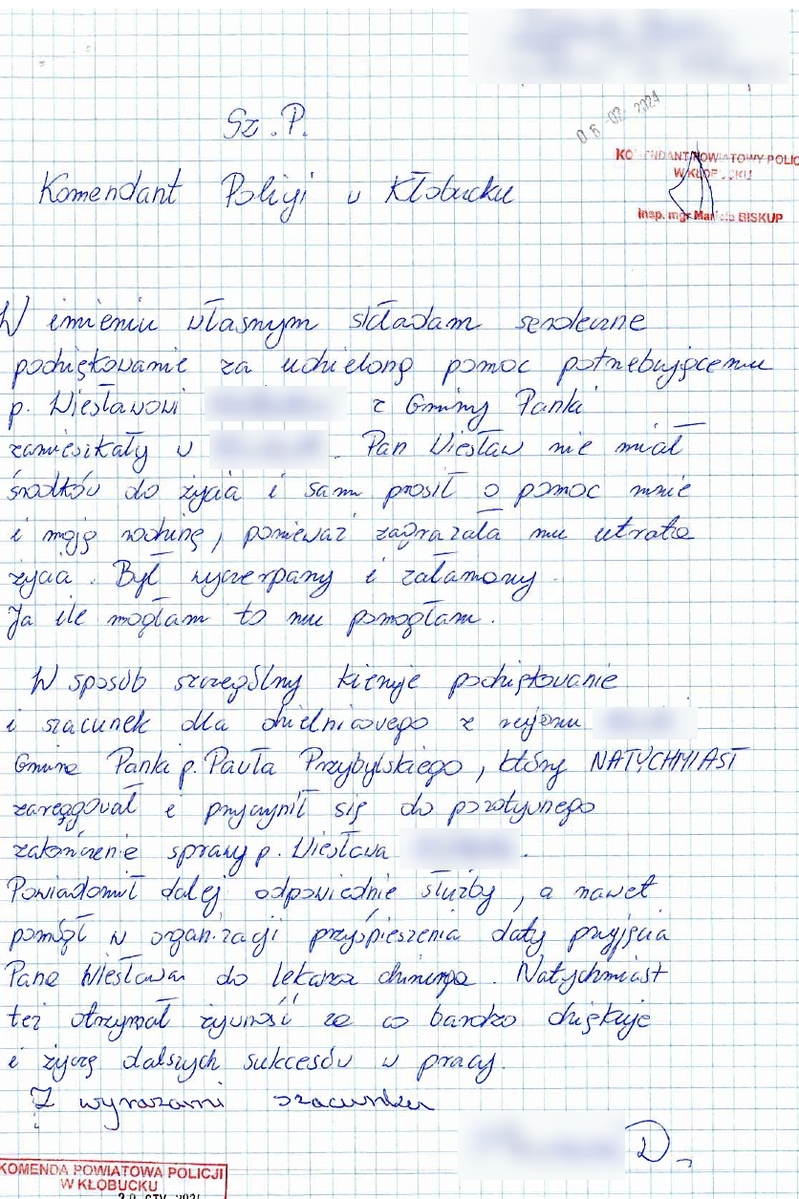 06-02-2024
KOMENDANT POWIATOWY POLICJ
W KŁOBUCKU
insp. mgr Mariola BISKUP
Sz. P.
Komendant Policji w Kłobucku
W imieniu własnym składam serdeczne
podziękowanie za udzieloną pomoc potrzebującemu
p. Wiesławowi z Gminy Panki
zamieszkały w . Pan Wiesław nie miał
środków do życia i sam prosił o pomoc mnie
i moją rodzinę, ponieważ zagrażała mu utrata
życia. Był wyczerpany i załamany.
Ja ile mogłam to mu pomogłam.
W sposób szczególny kieruje podziękowanie
i szacunek dla dzielnicowego z rejonu
Gmina Panki p. Pawła Przybylskiego, który NATYCHMIAST
zaregował i przyczynił się do pozotywnego
zakończenie sprawy p. Wiesława .
Powiadomił dalej odpowiednie służby, a nawet
pomógł w organizacji przyśpieszenia daty przyjęcia
Pana Wiesława do lekarza chirurga. Natychmiast
też otrzymał żywność za co bardzo dziękuje
i życzę dalszych sukcesów w pracy.
Z wyrazami szacunku
D.
KOMENDA POWIATOWA POLICJI
W KŁOBUCKU